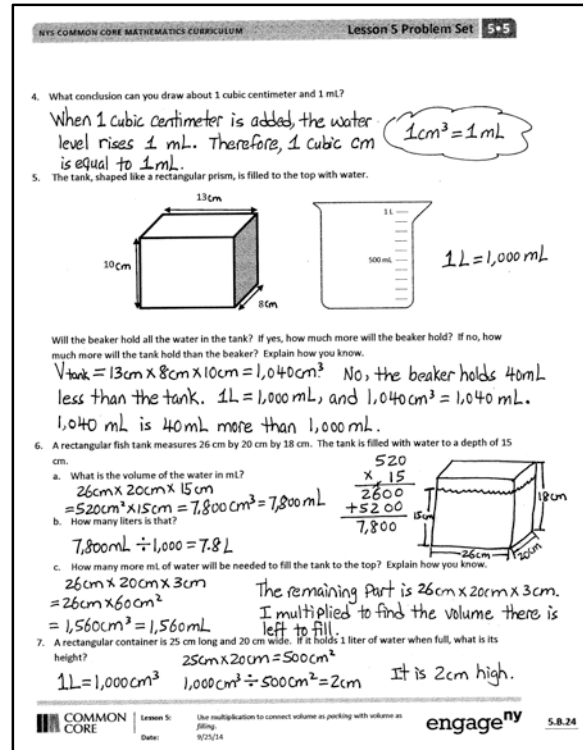 NYS COMMON CORE MATHEMATICS CURRICULUM
Lesson 5 Problem Set 5•5
4. What conclusion can you draw about 1 cubic centimeter and 1 mL?
When 1 cubic centimeter is added, the water
level rises 1 mL. Therefore, 1 cubic cm
is equal to 1mL.
1cm³ = 1mL
5. The tank, shaped like a rectangular prism, is filled to the top with water.
13cm
10cm
8cm
1 L
500 mL
1L = 1,000 mL
Will the beaker hold all the water in the tank? If yes, how much more will the beaker hold? If no, how
much more will the tank hold than the beaker? Explain how you know.
Vtank = 13cm × 8cm × 10cm = 1,040cm³ No, the beaker holds 40mL
less than the tank. 1L = 1,000mL, and 1,040cm³ = 1,040 mL.
1,040 mL is 40mL more than 1,000mL.
6. A rectangular fish tank measures 26 cm by 20 cm by 18 cm. The tank is filled with water to a depth of 15
cm.
a. What is the volume of the water in mL?
26cm × 20cm × 15cm
= 520cm² × 15cm = 7,800cm³ = 7,800mL
520
× 15
2600
+5200
7,800
15cm
18cm
26cm
20cm
b. How many liters is that?
7,800mL ÷ 1,000 = 7.8L
c. How many more mL of water will be needed to fill the tank to the top? Explain how you know.
26cm × 20cm × 3cm
= 26cm × 60cm²
= 1,560cm³ = 1,560mL
The remaining part is 26cm × 20cm × 3cm.
I multiplied to find the volume there is
left to fill.
7. A rectangular container is 25 cm long and 20 cm wide. If it holds 1 liter of water when full, what is its
height?
25cm × 20cm = 500cm²
1L = 1,000cm³ 1,000cm³ ÷ 500cm² = 2cm It is 2cm high.
COMMON
CORE
Lesson 5:
Use multiplication to connect volume as packing with volume as
filling.
Date:
9/25/14
engageny
5.B.24